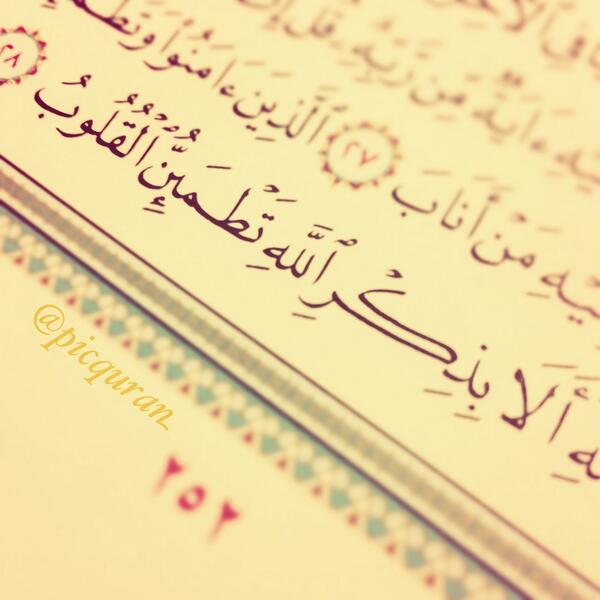 فِي
ءَايَةٌ مِّن رَّبِّهِۦ قُلْ
مَنْ أَنَابَ ٢٧ ٱلَّذِينَ ءَامَنُوا۟
أَلَا بِذِكْرِ ٱللَّهِ تَطْمَئِنُّ ٱلْقُلُوبُ ٢٨
@picquran
٢٥٢